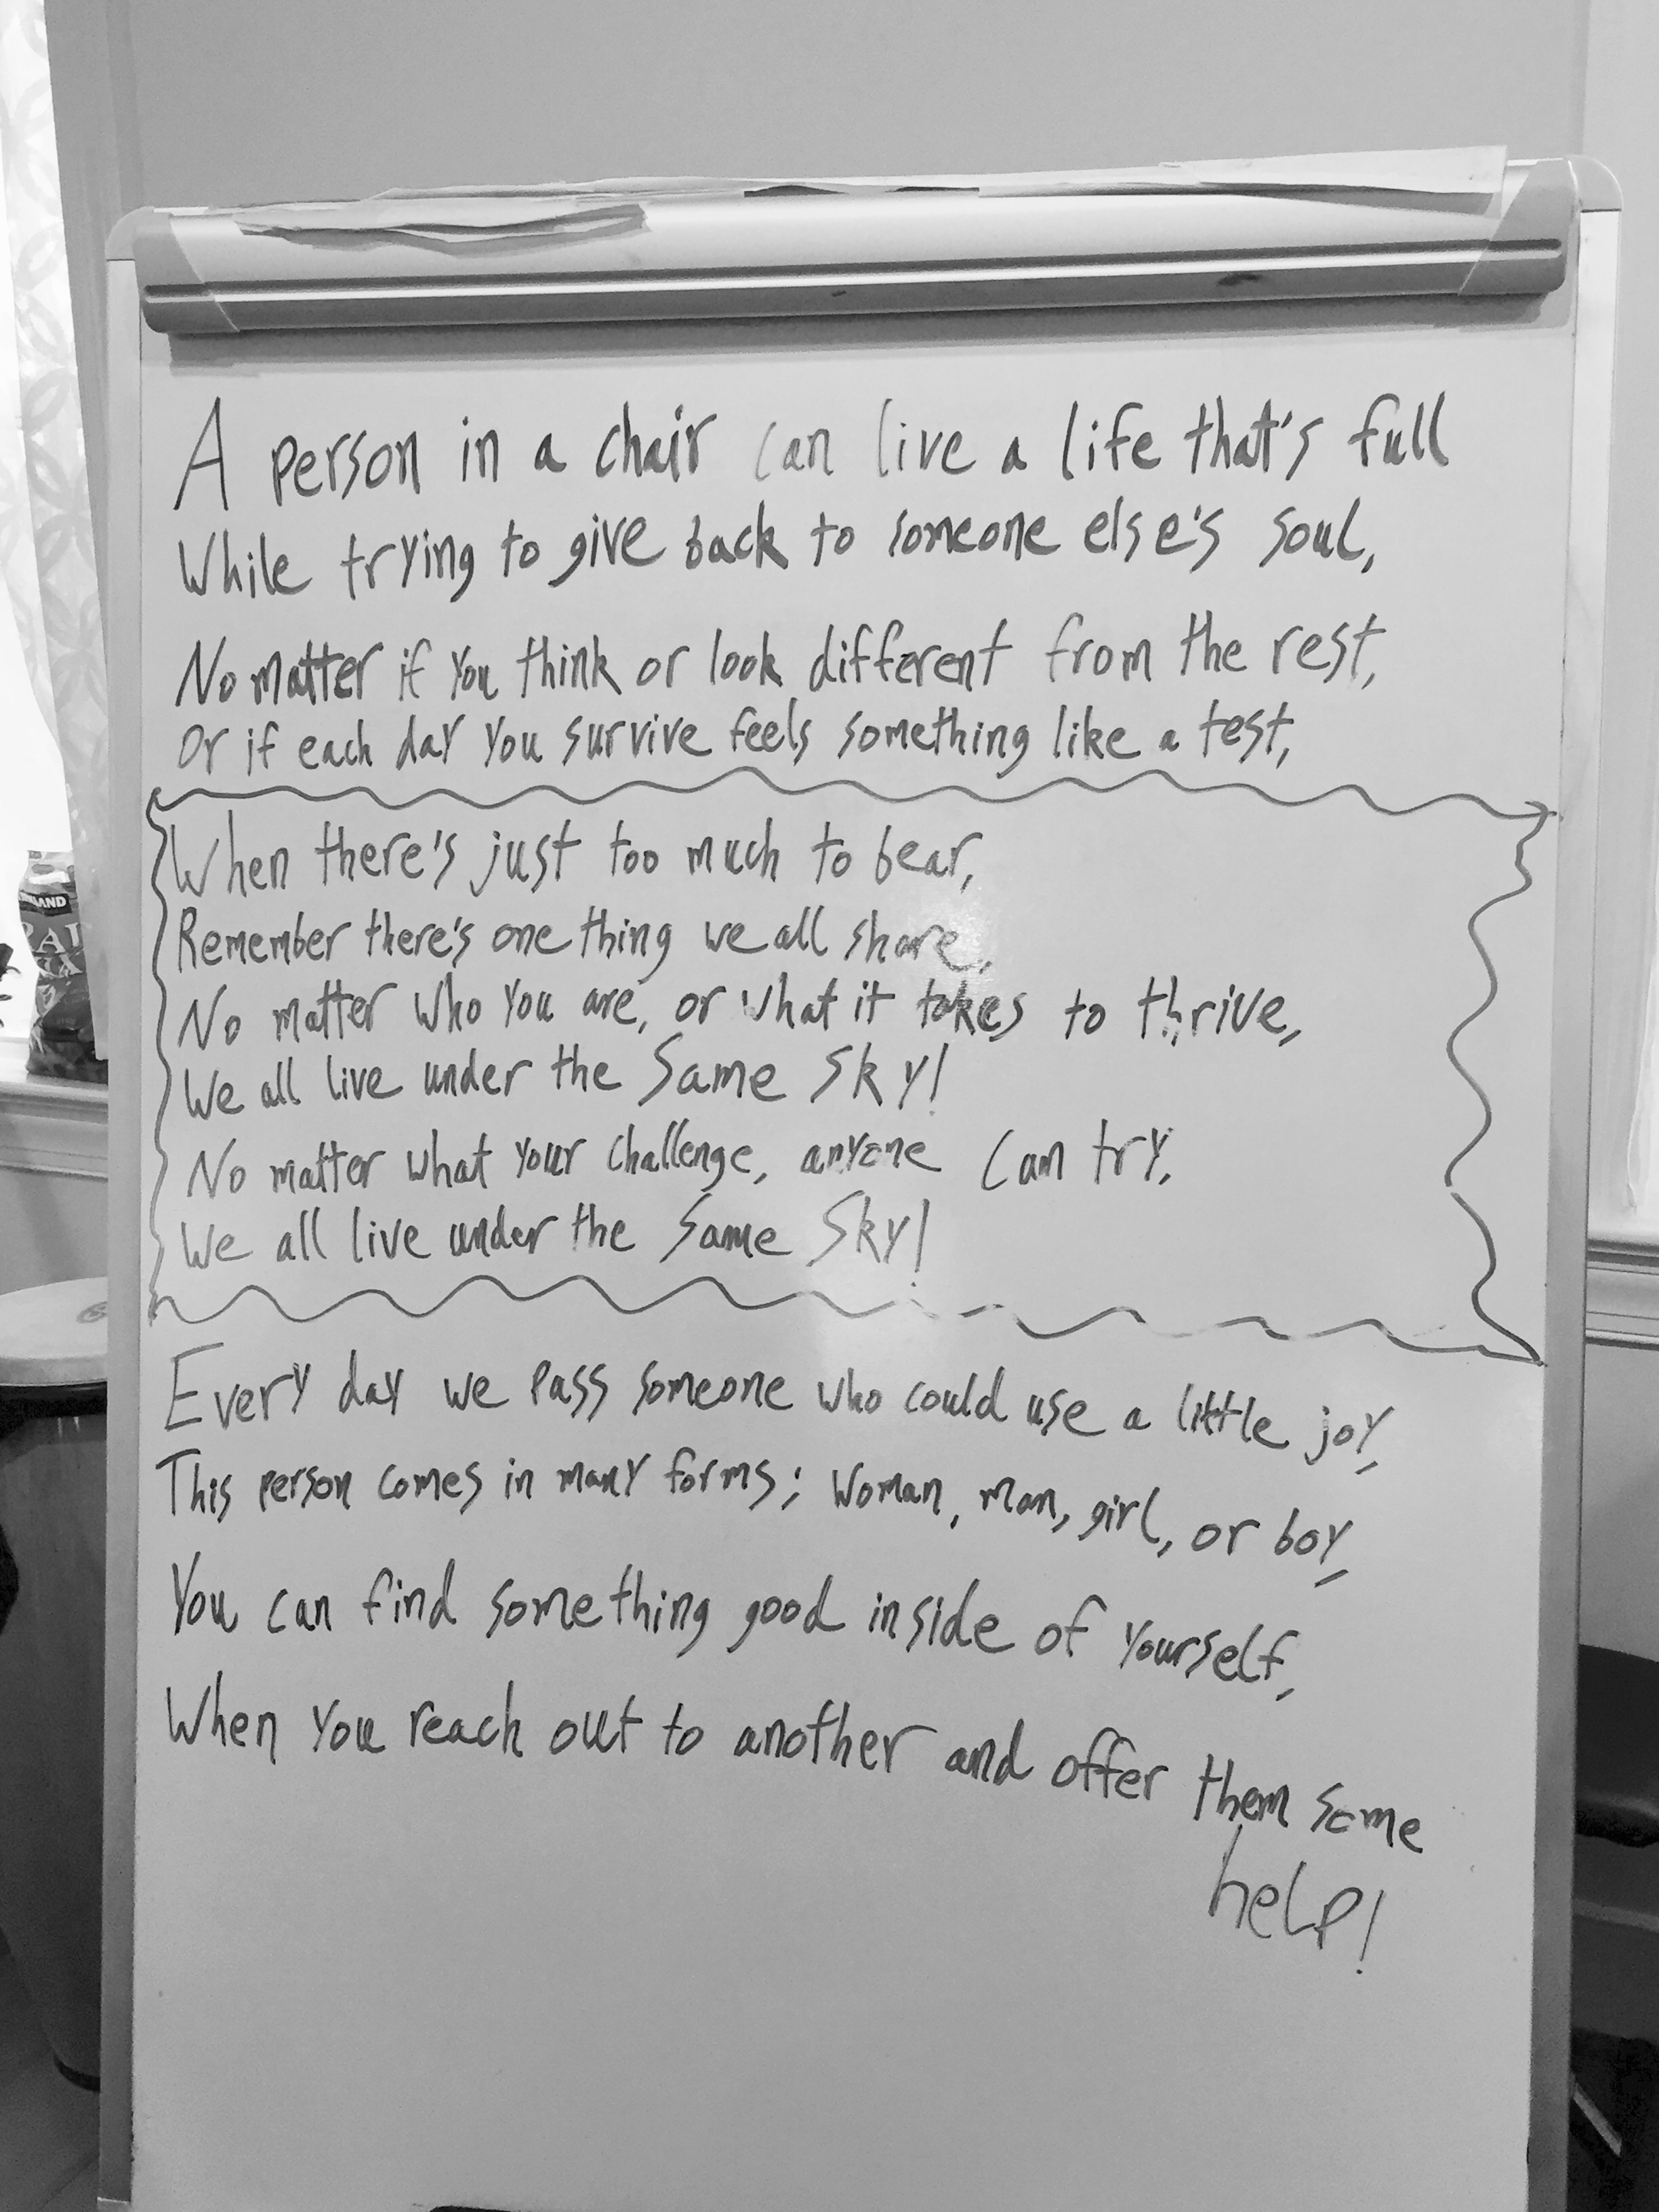 A person in a chair can live a life that's full
While trying to give back to someone else's soul,
No matter if you think or look different from the rest,
Or if each day you survive feels something like a test,
When there's just too much to bear,
Remember there's one thing we all share,
No matter who you are, or what it takes to thrive,
We all live under the Same Sky!
No matter what your challenge, anyone can try,
We all live under the Same Sky!
Every day we pass someone who could use a little joy,
This person comes in many forms; Woman, man, girl, or boy,
You can find something good inside of yourself,
When you reach out to another and offer them some
help!